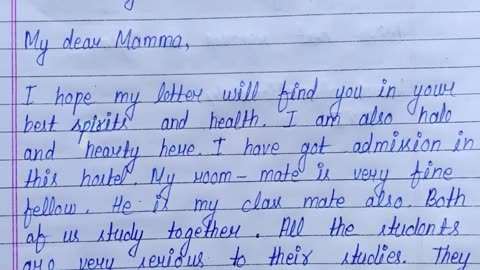 My dear Mamma,
I hope my letter will find you in your
best spirits and health. I am also hale
and hearty here. I have got admission in
this hostel. My room-mate is very fine
fellow. He is my class mate also. Both
of us study together. All the students
are very serious to their studies. They